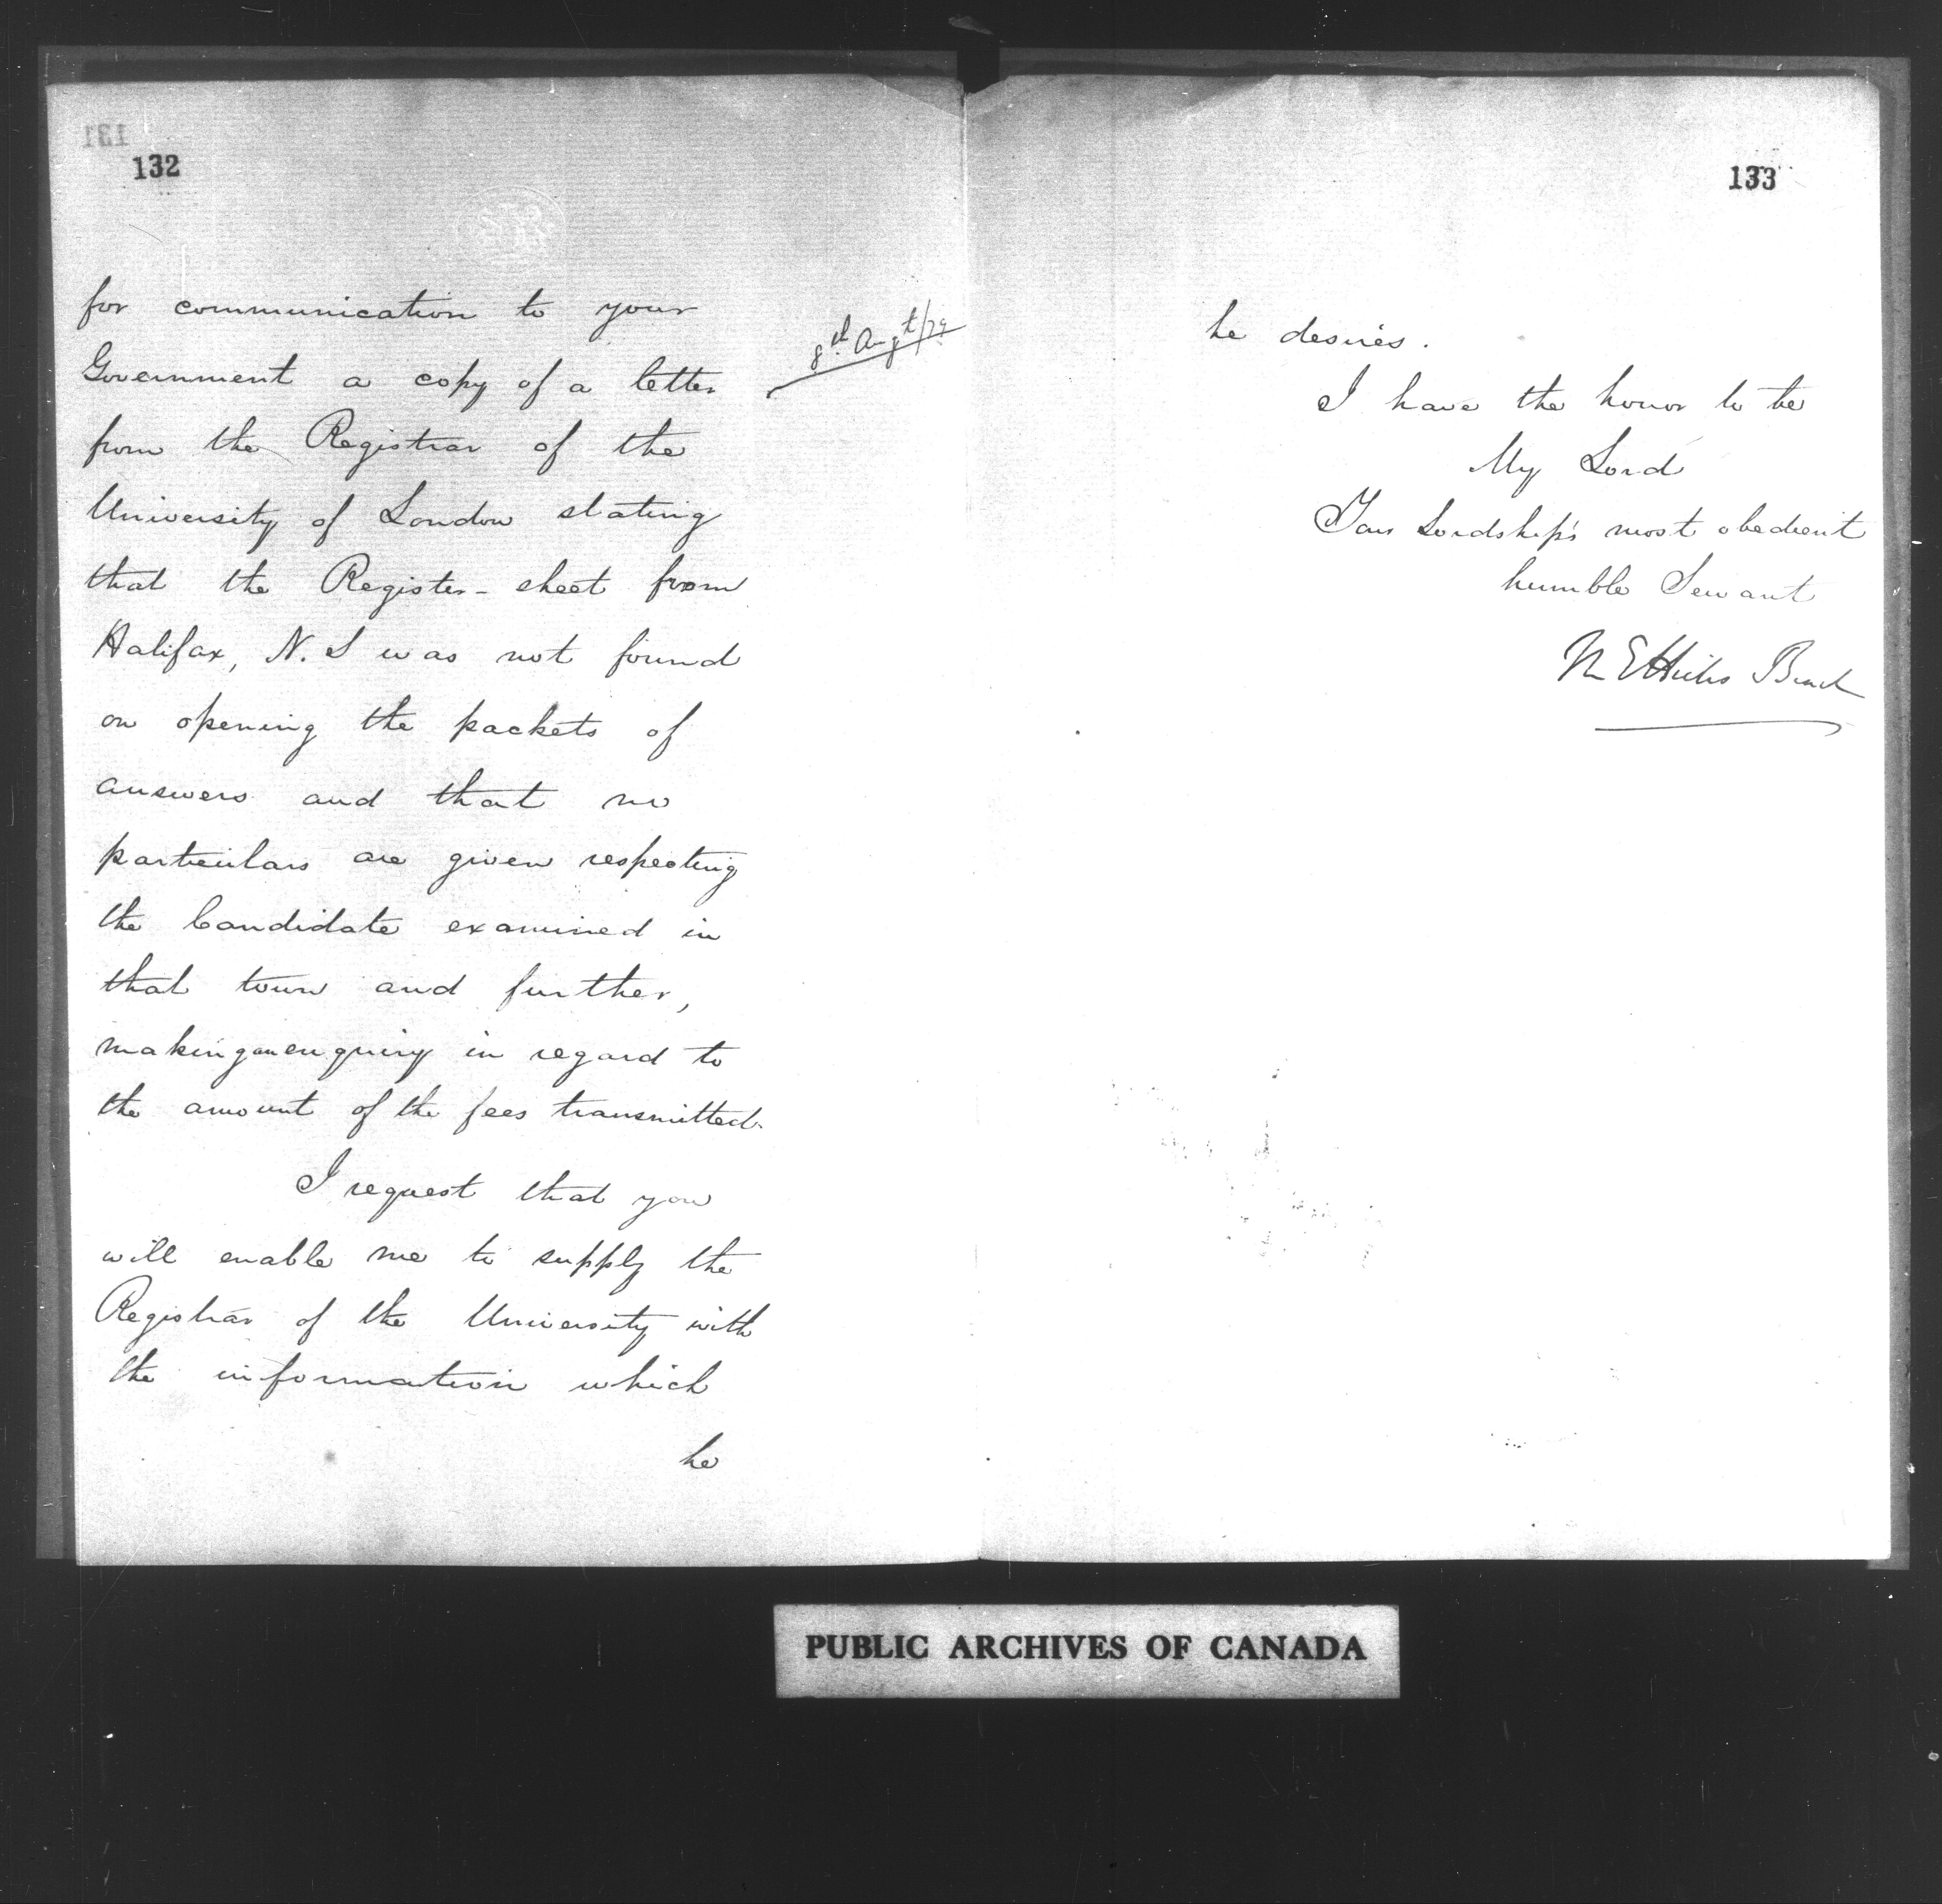 132
for communication to your
Government a copy of a letter
8th Augt/79
from the Registrar of the
University of London stating
that the Register-sheet from
Halifax, N.S was not found
on opening the packets of
answers and that no
particulars are given respecting
the Candidate examined in
that town and further,
making an enquiry in regard to
the amount of the fees transmitted.
I request that you
will enable me to supply the
Registrar of the University with
the information which
he
133
he desires.
I have the honor to be
My Lord
Your Lordship's most obedient
humble Servant
M E Hicks Beach
PUBLIC ARCHIVES OF CANADA